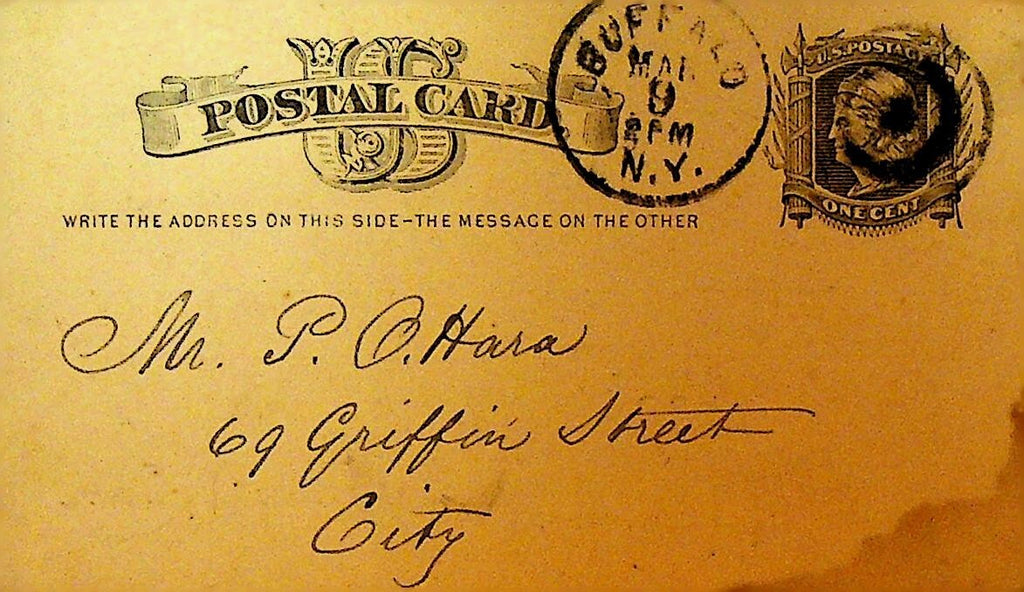 US
POSTAL CARD
BUFFALO
MAR
9
2PM
N.Y.
U.S. POSTAGE
ONE CENT
WRITE THE ADDRESS ON THIS SIDE-THE MESSAGE ON THE OTHER
Mr. P. O.Hara
69 Griffin Street
City